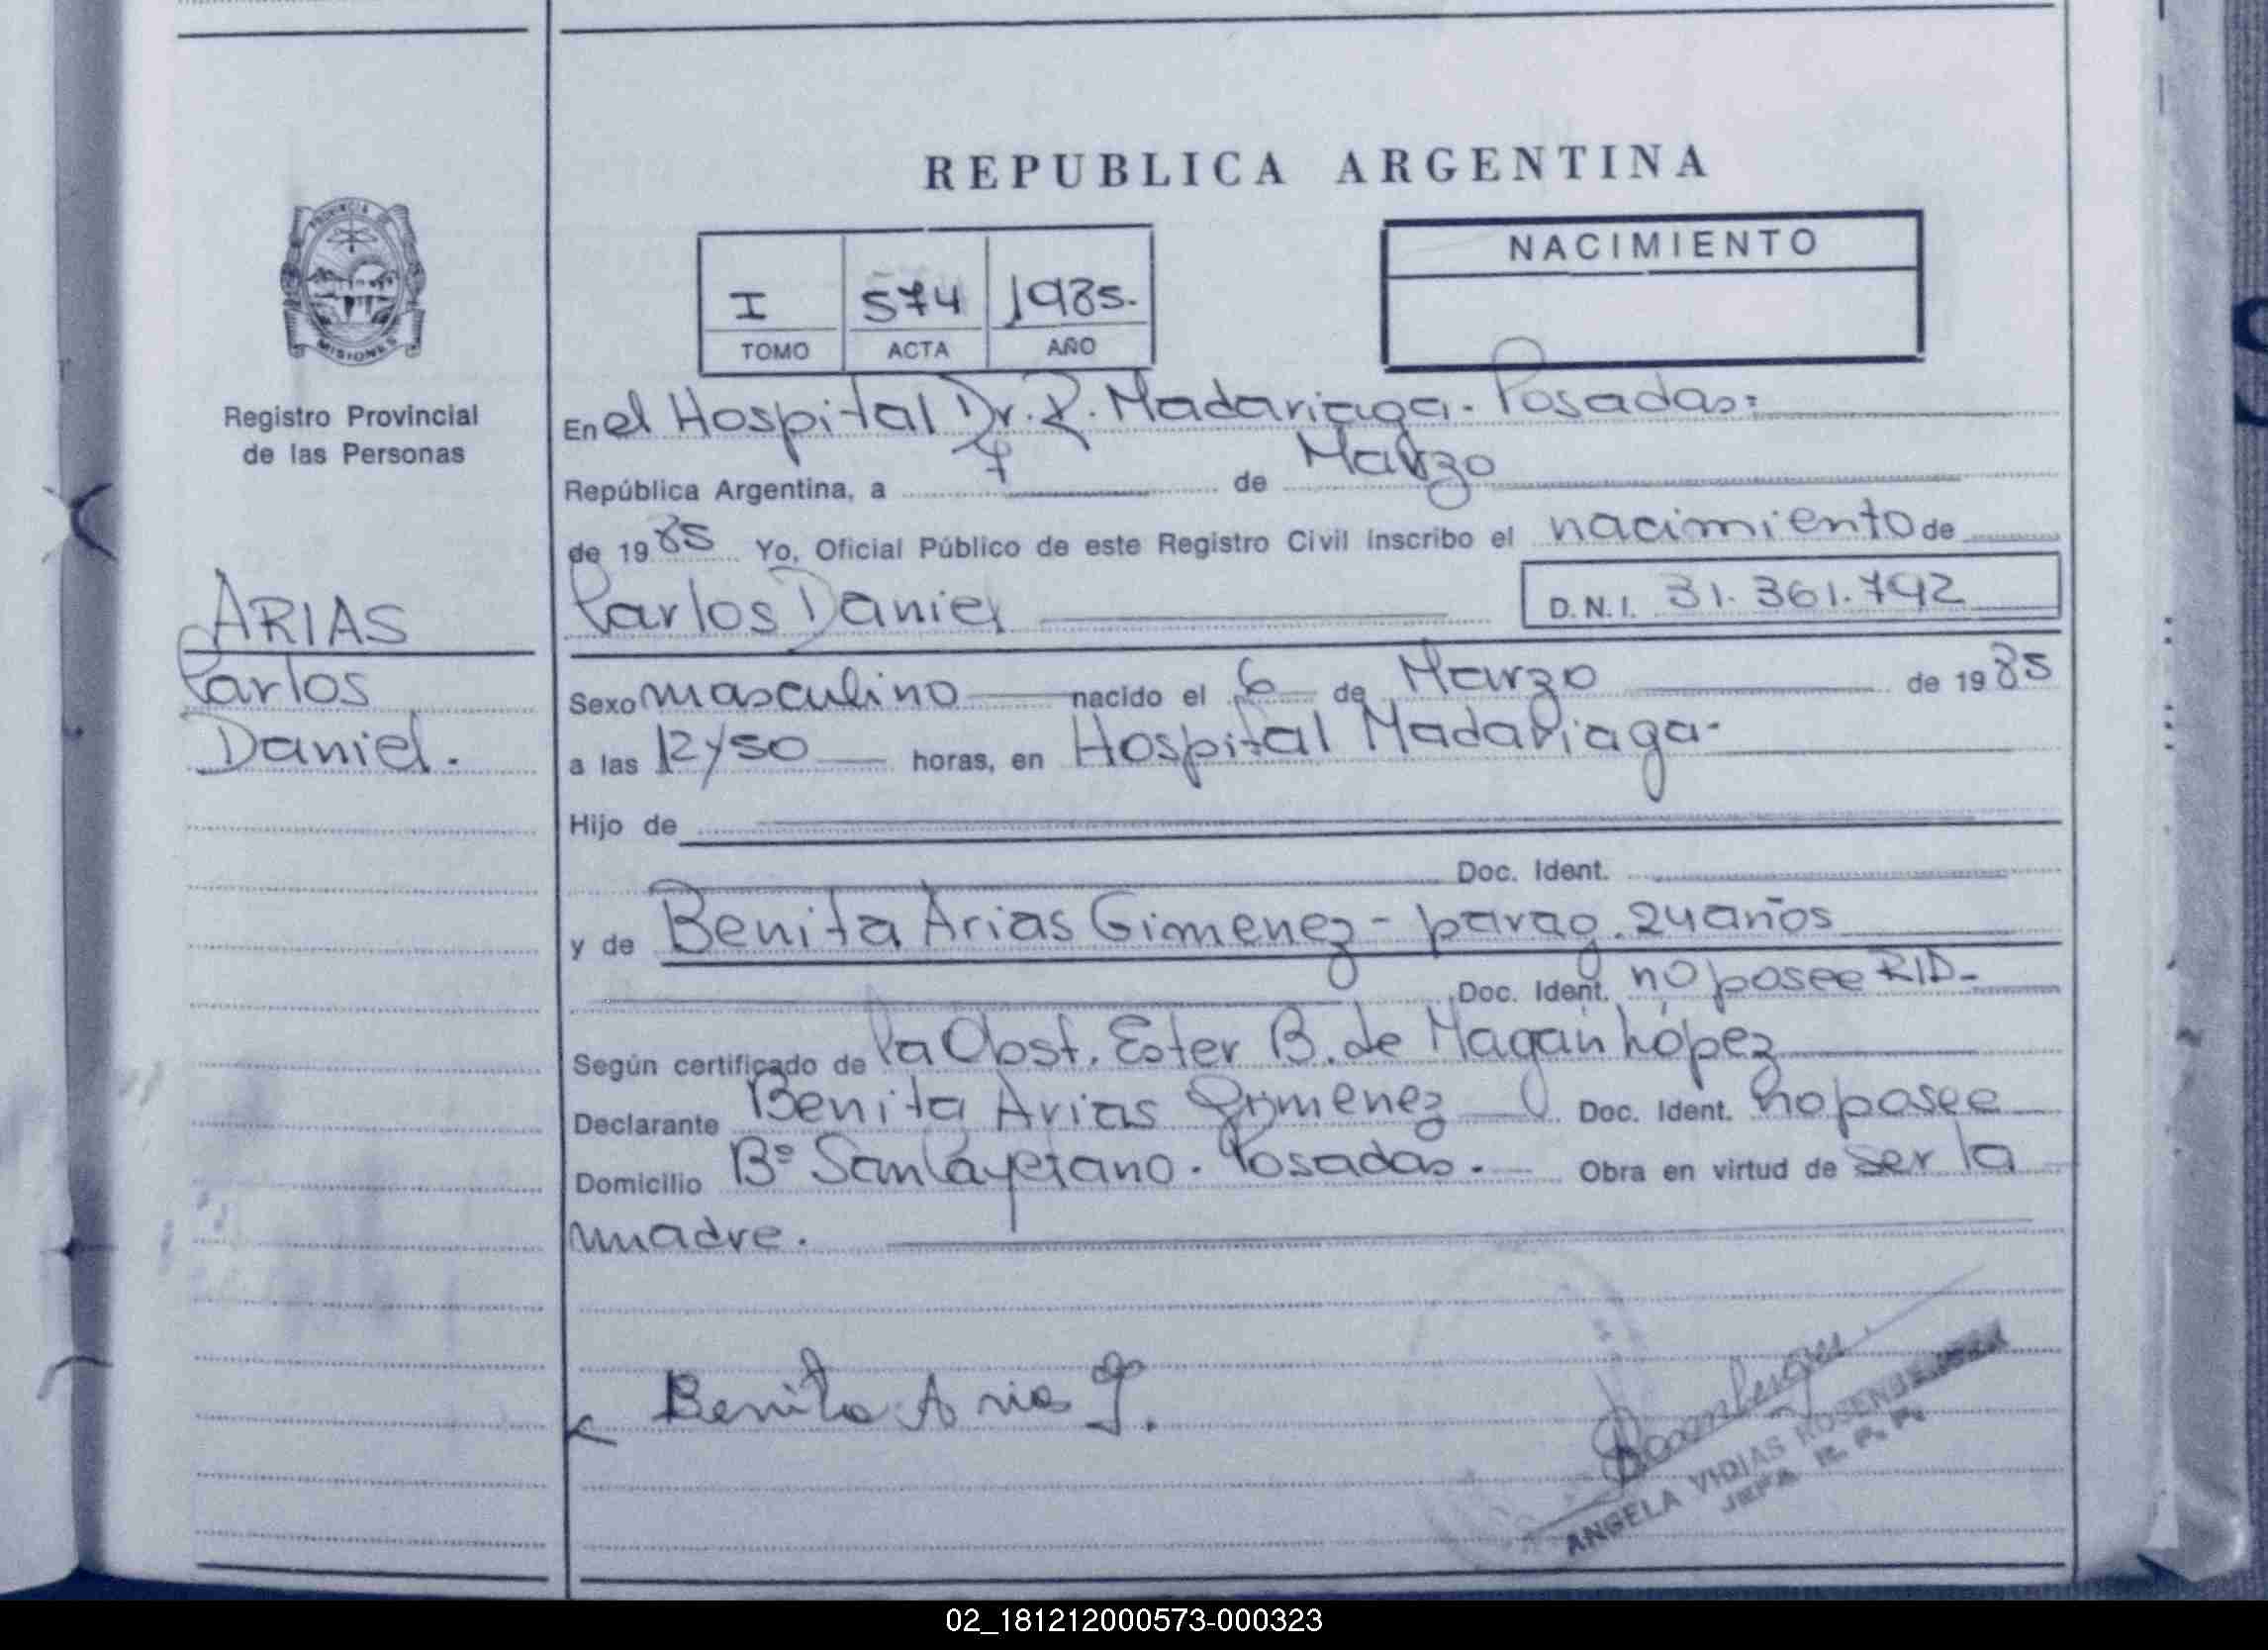 REPUBLICA ARGENTINA
PROVINCIA DE
MISIONES
Registro Provincial
de las Personas
ARIAS
Carlos
Daniel.
I 574 1985.
TOMO ACTA AÑO
NACIMIENTO
En el Hospital Dr. R. Madariaga. Posadas.
República Argentina, a 7 de Marzo
de 1985 Yo, Oficial Público de este Registro Civil inscribo el nacimiento de
Carlos Daniel D.N.I. 31.361.792
Sexo masculino nacido el 6 de Marzo de 1985
a las 12y50 horas, en Hospital Madariaga-
Hijo de
Doc. Ident.
y de Benita Arias Gimenez - parag. 24 años
Doc. Ident. no posee RID-
Según certificado de la Obst. Ester B. de Magan López
Declarante Benita Arias Gimenez Doc. Ident. no posee
Domicilio Bº San Cayetano. Posadas. Obra en virtud de ser la
madre.
Benita Arias G.
ANGELA VIDIAS
JEFA R. P. P.
02_181212000573-000323